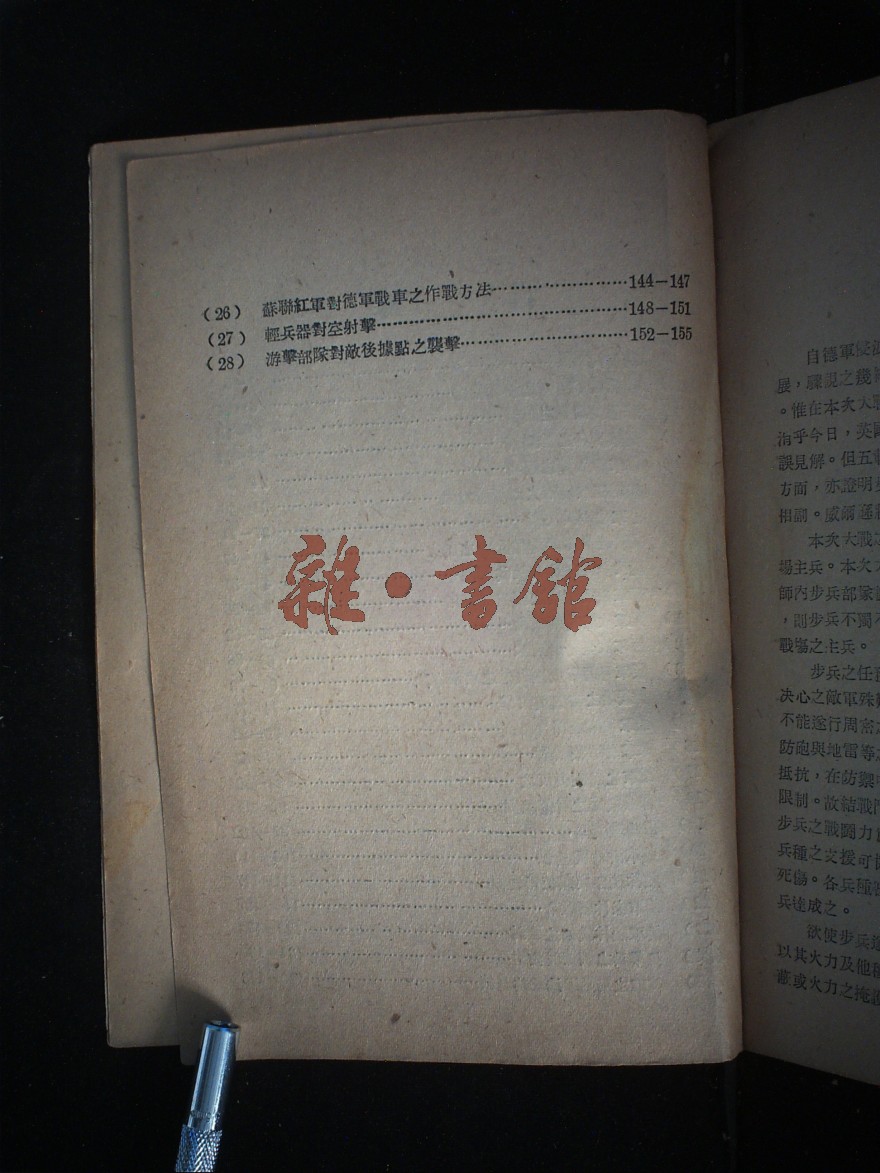 (26) 蘇聯紅軍對德軍戰車之作戰方法…………………144—147
(27) 輕兵器對空射擊…………………………………148—151
(28) 游擊部隊對敵後據點之襲擊……………………152—155
雜·書館
自德軍
展，
。惟在本次大戰
今日，英
誤見解。但五
方面，亦證明
相副。威爾
本次大戰
場主兵。本次
師內步兵部隊
，則步兵不獨
戰場之主兵。
步兵之任
決心之敵軍殊
不能遂行周密
防砲與地雷等
抵抗，在防禦
限制。故結戰
步兵之戰鬪力
兵種之支援可
死傷。各兵種
兵達成之。
欲使步兵
以其火力及他
蔽或火力之掩